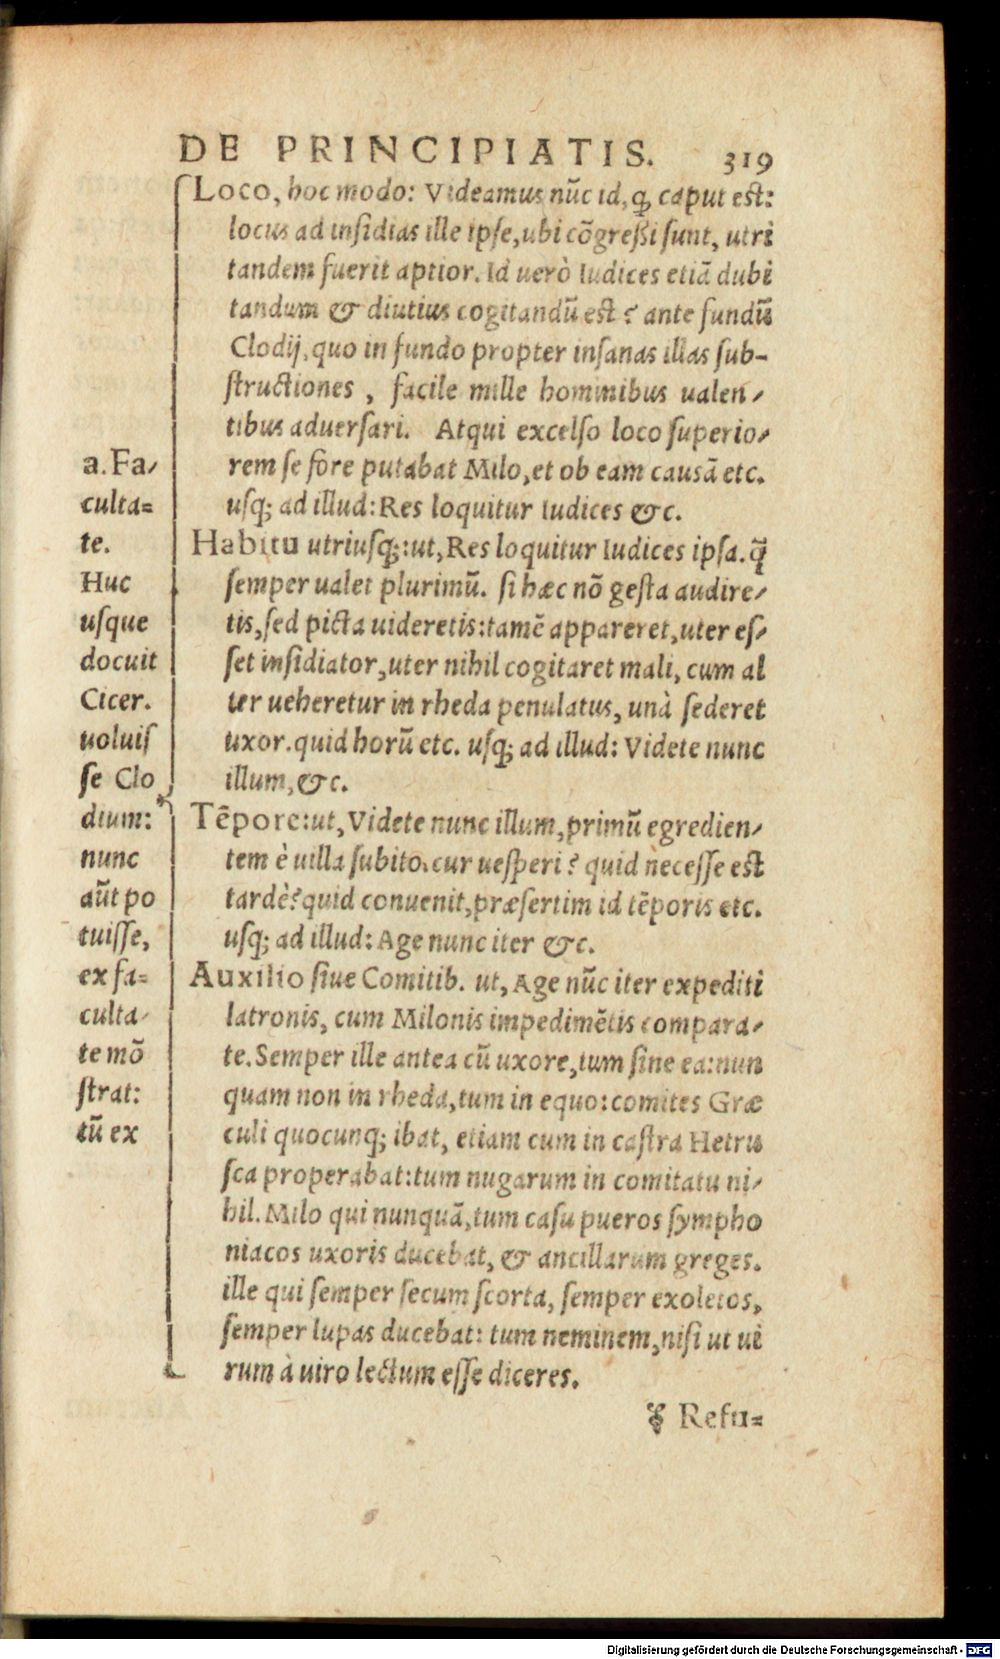 DE PRINCIPIATIS. 319
Loco, hoc modo: Videamus nũc id, ꝙ caput est:
locus ad insidias ille ipse, ubi cõgreßi sunt, utri
tandem fuerit aptior. Id uerò Iudices etiã dubi
tandum & diutius cogitandũ est? ante fundũ
Clodij, quo in fundo propter insanas illas sub-
structiones, facile mille hominibus ualen-
tibus aduersari. Atqui excelso loco superio-
rem se fore putabat Milo, et ob eam causã etc.
usq; ad illud: Res loquitur Iudices &c.
Habitu utriusq;: ut, Res loquitur Iudices ipsa. q̃
semper ualet plurimũ. si hæc nõ gesta audire-
tis, sed picta uideretis: tamẽ appareret, uter es-
set insidiator, uter nihil cogitaret mali, cum al
ter ueheretur in rheda penulatus, unà sederet
uxor. quid horũ etc. usq; ad illud: Videte nunc
illum, &c.
Tẽpore: ut, Videte nunc illum, primũ egredien-
tem è uilla subito. cur uesperi? quid necesse est
tardè? quid conuenit, præsertim id tẽporis etc.
usq; ad illud: Age nunc iter &c.
Auxilio siue Comitib. ut, Age nũc iter expediti
latronis, cum Milonis impedimẽtis compara-
te. Semper ille antea cũ uxore, tum sine ea: nun
quam non in rheda, tum in equo: comites Græ
culi quocunq; ibat, etiam cum in castra Hetru
sca properabat: tum nugarum in comitatu ni-
hil. Milo qui nunquã, tum casu pueros sympho
niacos uxoris ducebat, & ancillarum greges.
ille qui semper secum scorta, semper exoletos,
semper lupas ducebat: tum neminem, nisi ut ui
rum à uiro lectum esse diceres.
❦ Refu-
a. Fa-
culta-
te.
Huc
usque
docuit
Cicer.
uoluis
se Clo
dium:
nunc
aũt po
tuisse,
ex fa-
culta-
te mõ
strat:
tũ ex
Digitalisierung gefördert durch die Deutsche Forschungsgemeinschaft - DFG